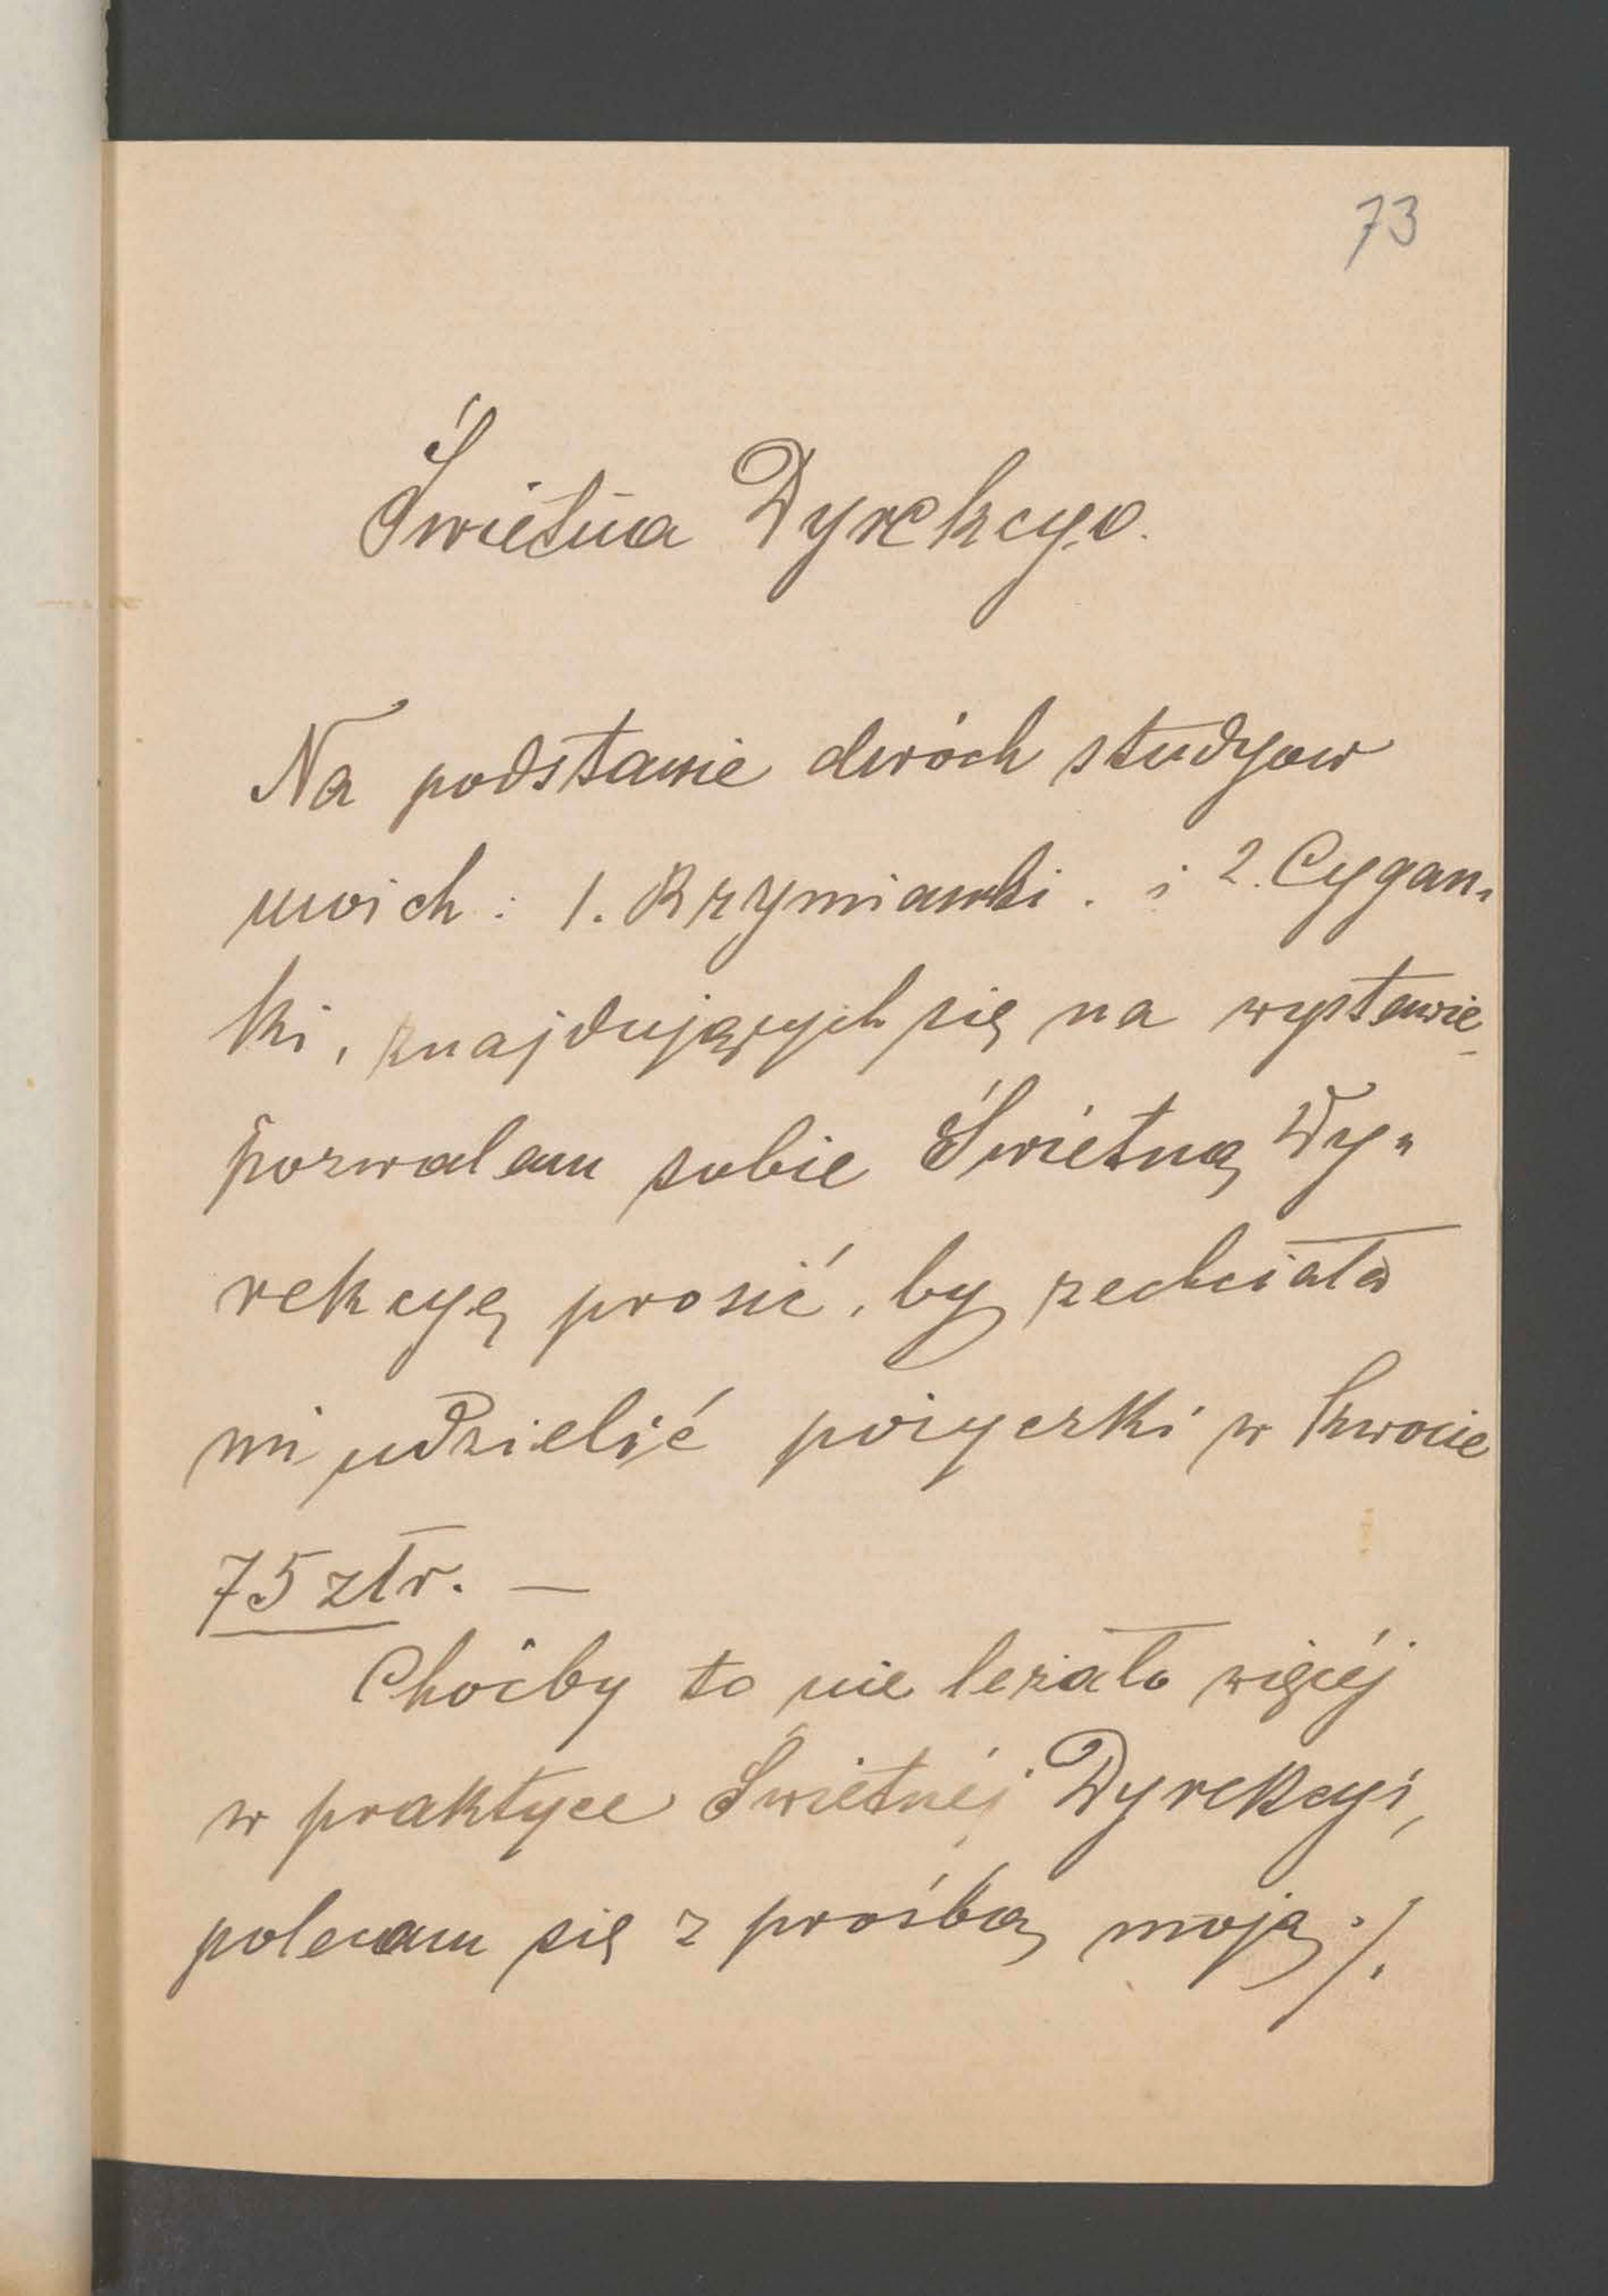 73
Świetna Dyrekcyo.
Na podstawie dwóch studyow
moich : 1. Rzymianki . i 2. Cygan„
ki, znajdujących się na wystawie
pozwalam sobie Świetną Dy„
rekcyę prosić, by zechciała
mi udzielić pożyczki w kwocie
75 złr. —
Choćby to nie leżało więcéj
w praktyce Świetnéj Dyrekcyi,
polecam się z prośbą moją ./.